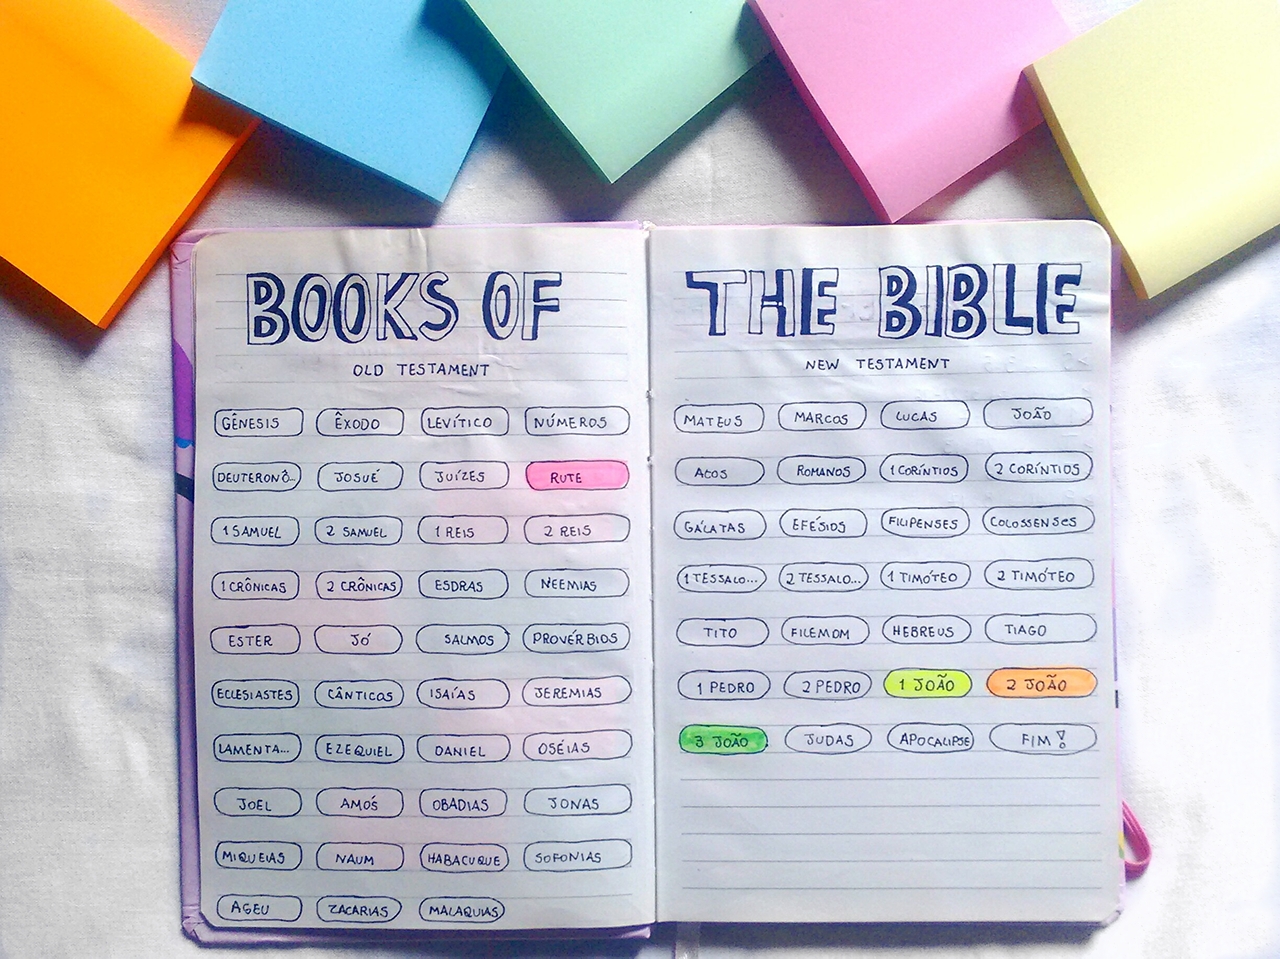 BOOKS OF
OLD TESTAMENT
GÊNESIS ÊXODO LEVÍTICO NÚMEROS
DEUTERONÔ... JOSUÉ JUÍZES RUTE
1 SAMUEL 2 SAMUEL 1 REIS 2 REIS
1 CRÔNICAS 2 CRÔNICAS ESDRAS NEEMIAS
ESTER JÓ SALMOS PROVÉRBIOS
ECLESIASTES CÂNTICOS ISAÍAS JEREMIAS
LAMENTA... EZEQUIEL DANIEL OSÉIAS
JOEL AMÓS OBADIAS JONAS
MIQUEIAS NAUM HABACUQUE SOFONIAS
AGEU ZACARIAS MALAQUIAS
THE BIBLE
NEW TESTAMENT
MATEUS MARCOS LUCAS JOÃO
ATOS ROMANOS 1 CORÍNTIOS 2 CORÍNTIOS
GÁLATAS EFÉSIOS FILIPENSES COLOSSENSES
1 TESSALO... 2 TESSALO... 1 TIMÓTEO 2 TIMÓTEO
TITO FILEMOM HEBREUS TIAGO
1 PEDRO 2 PEDRO 1 JOÃO 2 JOÃO
3 JOÃO JUDAS APOCALIPSE FIM!